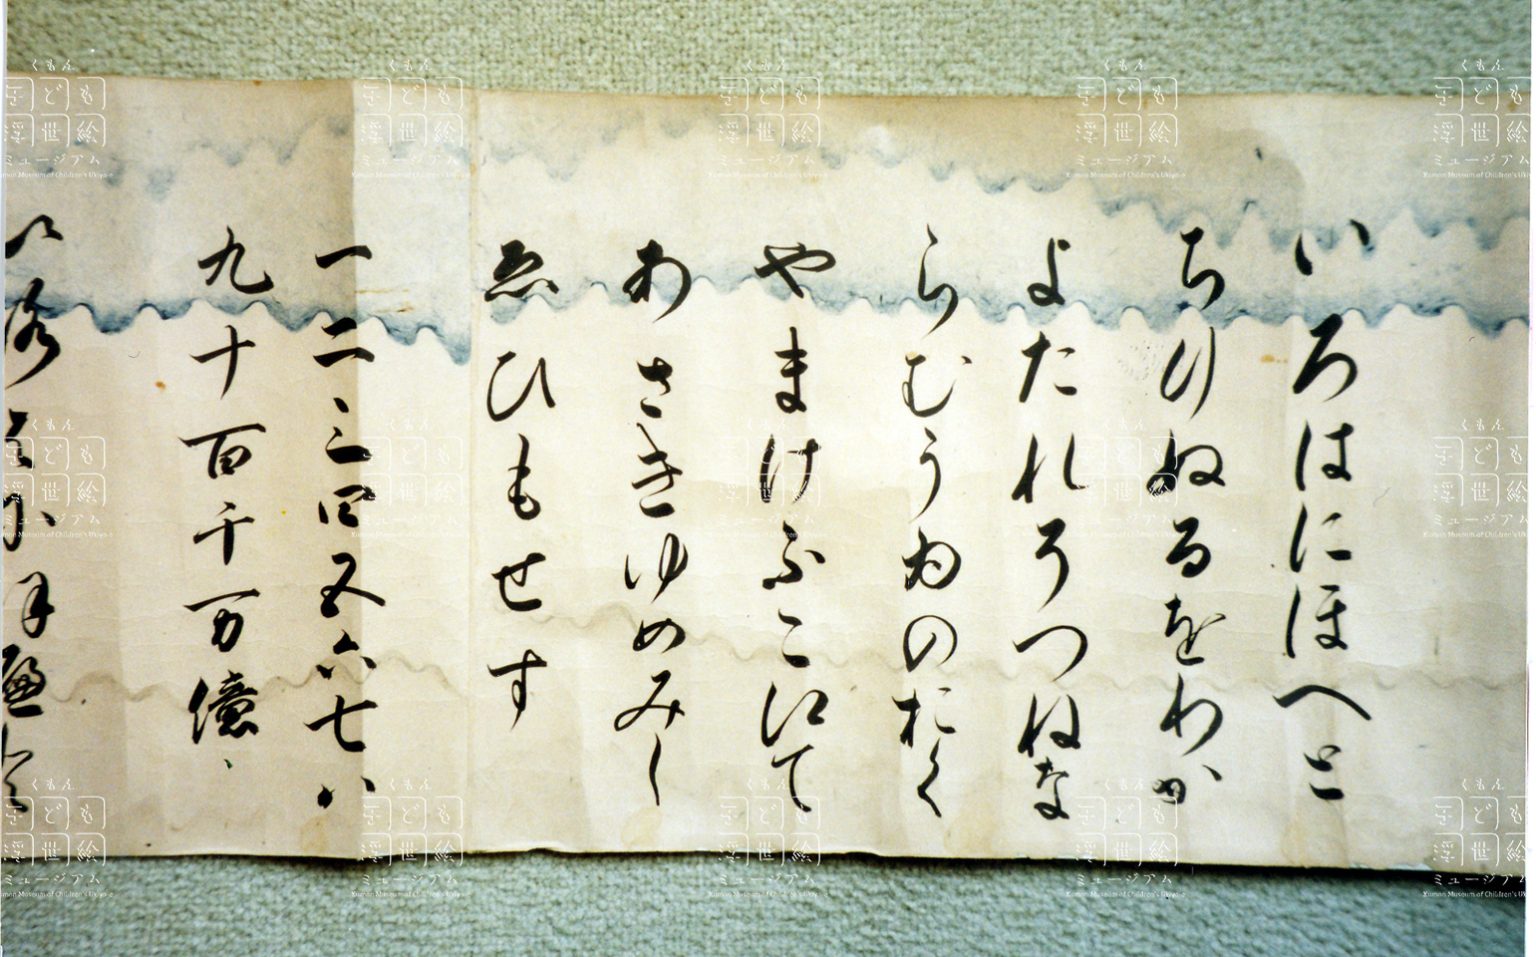 いろはにほへと
ちりぬるをわか
よたれそつねな
らむうゐのおく
やまけふこえて
あさきゆめみし
ゑひもせす
一二三四五六七八
九十百千万億
くもん
子ども
浮世絵
ミュージアム
Kumon Museum of Children's Ukiyo-e